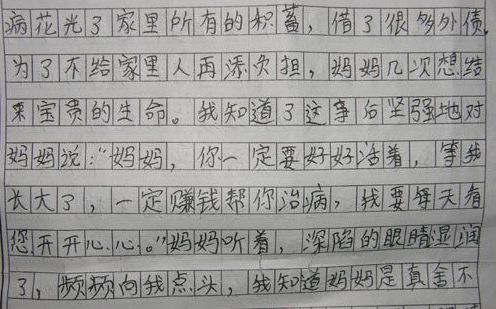 病花光了家里所有的积蓄,借了很多外债,
为了不给家里人再添负担,妈妈几次想结
束宝贵的生命。我知道了这事后坚强地对
妈妈说:“妈妈,你一定要好好活着,等我
长大了,一定赚钱帮你治病,我要每天看
您开开心心。”妈妈听着,深陷的眼睛湿润
了,频频向我点头,我知道妈妈是真舍不